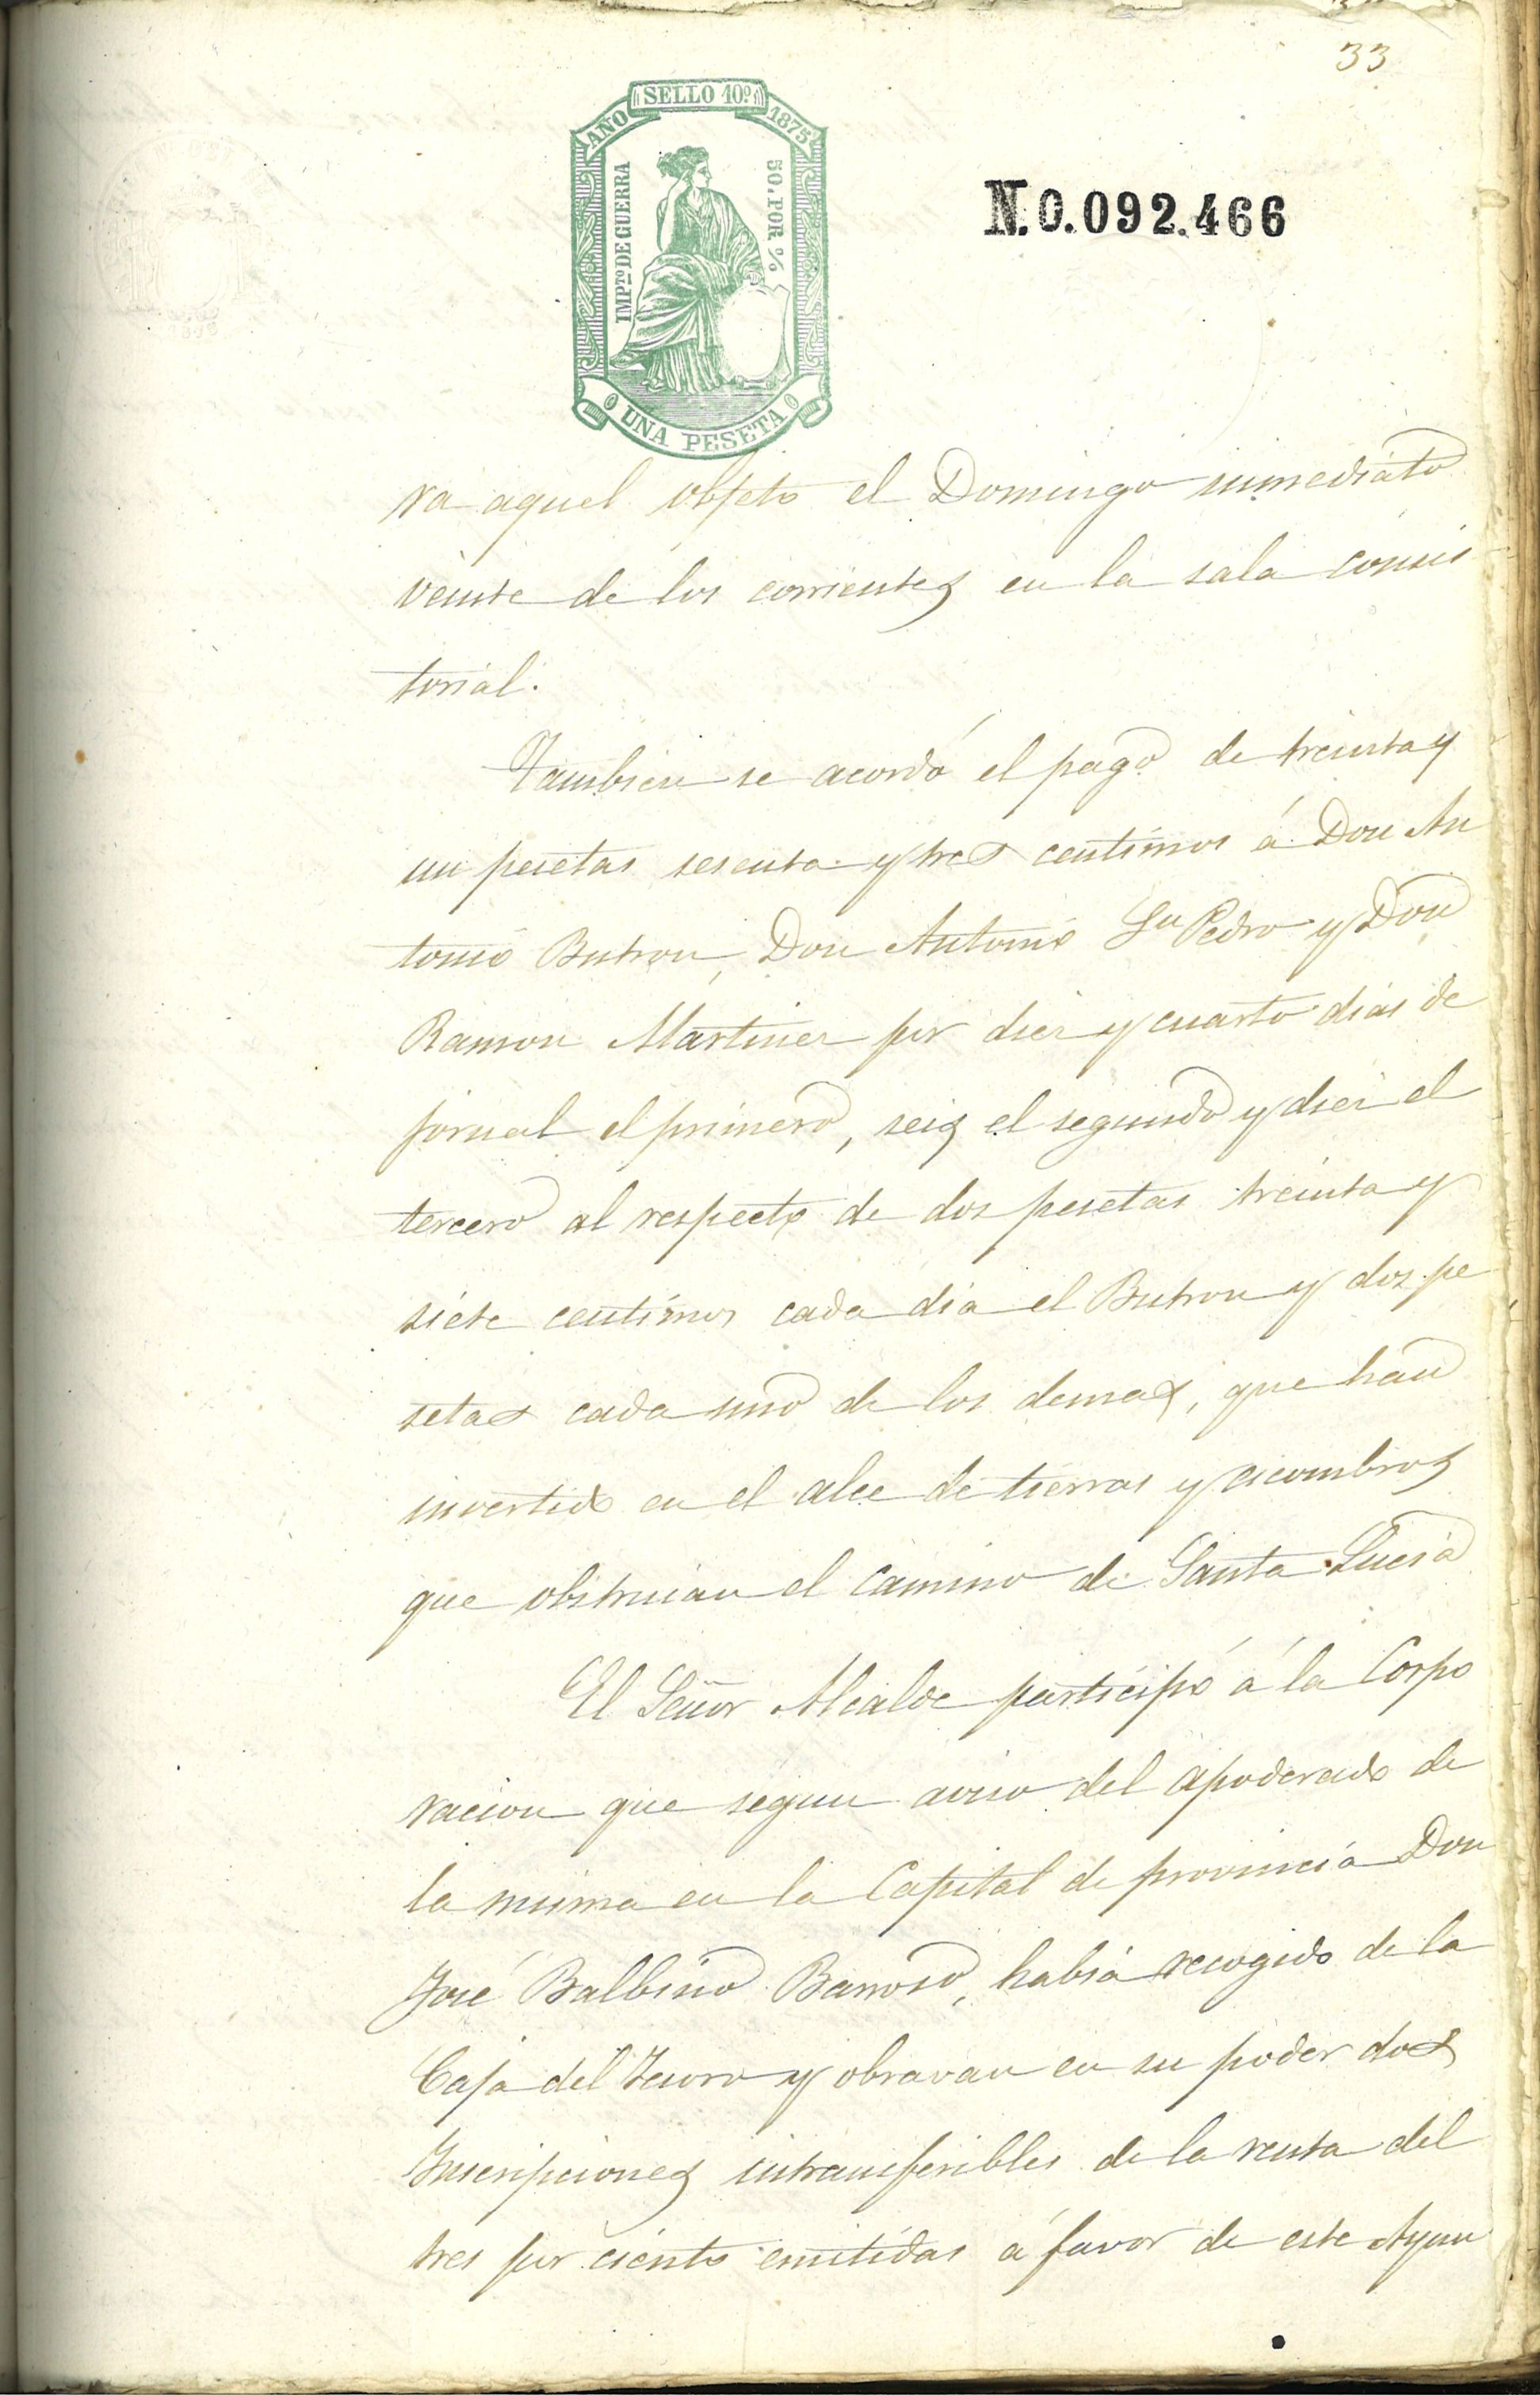 33
SELLO 10º
AÑO 1875
IMPTO DE GUERRA
50. POR %
UNA PESETA
N.0.092.466
ra aquel objeto el Domingo inmediato
veinte de los corrientes en la sala consis
torial.
Tambien se acordó el pago de treinta y
un pesetas sesenta y tres centimos á Don An
tonio Butron, Don Antonio Sn Pedro y Don
Ramon Martinez por diez y cuarto dias de
jornal el primero, seis el segundo y diez el
tercero al respecto de dos pesetas treinta y
siete centimos cada dia el Butron y dos pe
setas cada uno de los demas, que han
invertido en el alce de tierras y escombros
que obstruian el camino de Santa Lucia
El Señor Alcalde participó á la Corpo
racion que segun aviso del apoderado de
la misma en la Capital de provincia Don
José Balbino Barroso, habia recogido de la
Caja del Tesoro y obravan en su poder dos
Inscripciones intransferibles de la renta del
tres por ciento emitidas á favor de este Ayun